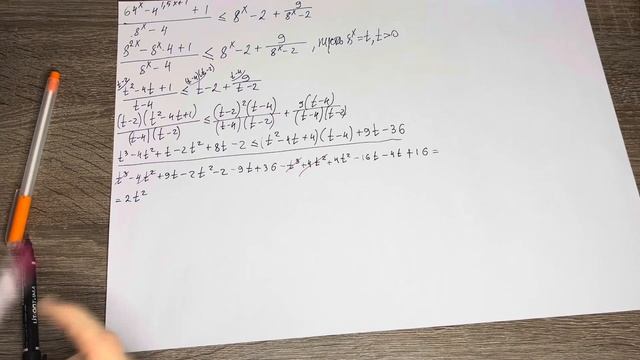 (64^x - 4^(1,5x+1) + 1)/(8^x - 4) ≤ 8^x - 2 + 9/(8^x - 2)
(8^2x - 8^x · 4 + 1)/(8^x - 4) ≤ 8^x - 2 + 9/(8^x - 2), пусть 8^x = t, t > 0
t-2 (t-4)(t-2) t-4
(t² - 4t + 1)/(t - 4) ≤ t - 2 + 9/(t - 2)
(t-2)(t²-4t+1)/(t-4)(t-2) ≤ (t-2)²(t-4)/(t-4)(t-2) + 9(t-4)/(t-4)(t-2)
t³ - 4t² + t - 2t² + 8t - 2 ≤ (t² - 4t + 4)(t - 4) + 9t - 36
t³ - 4t² + 9t - 2t² - 2 - 9t + 36 - t³ + 4t² + 4t² - 16t - 4t + 16 =
= 2t²